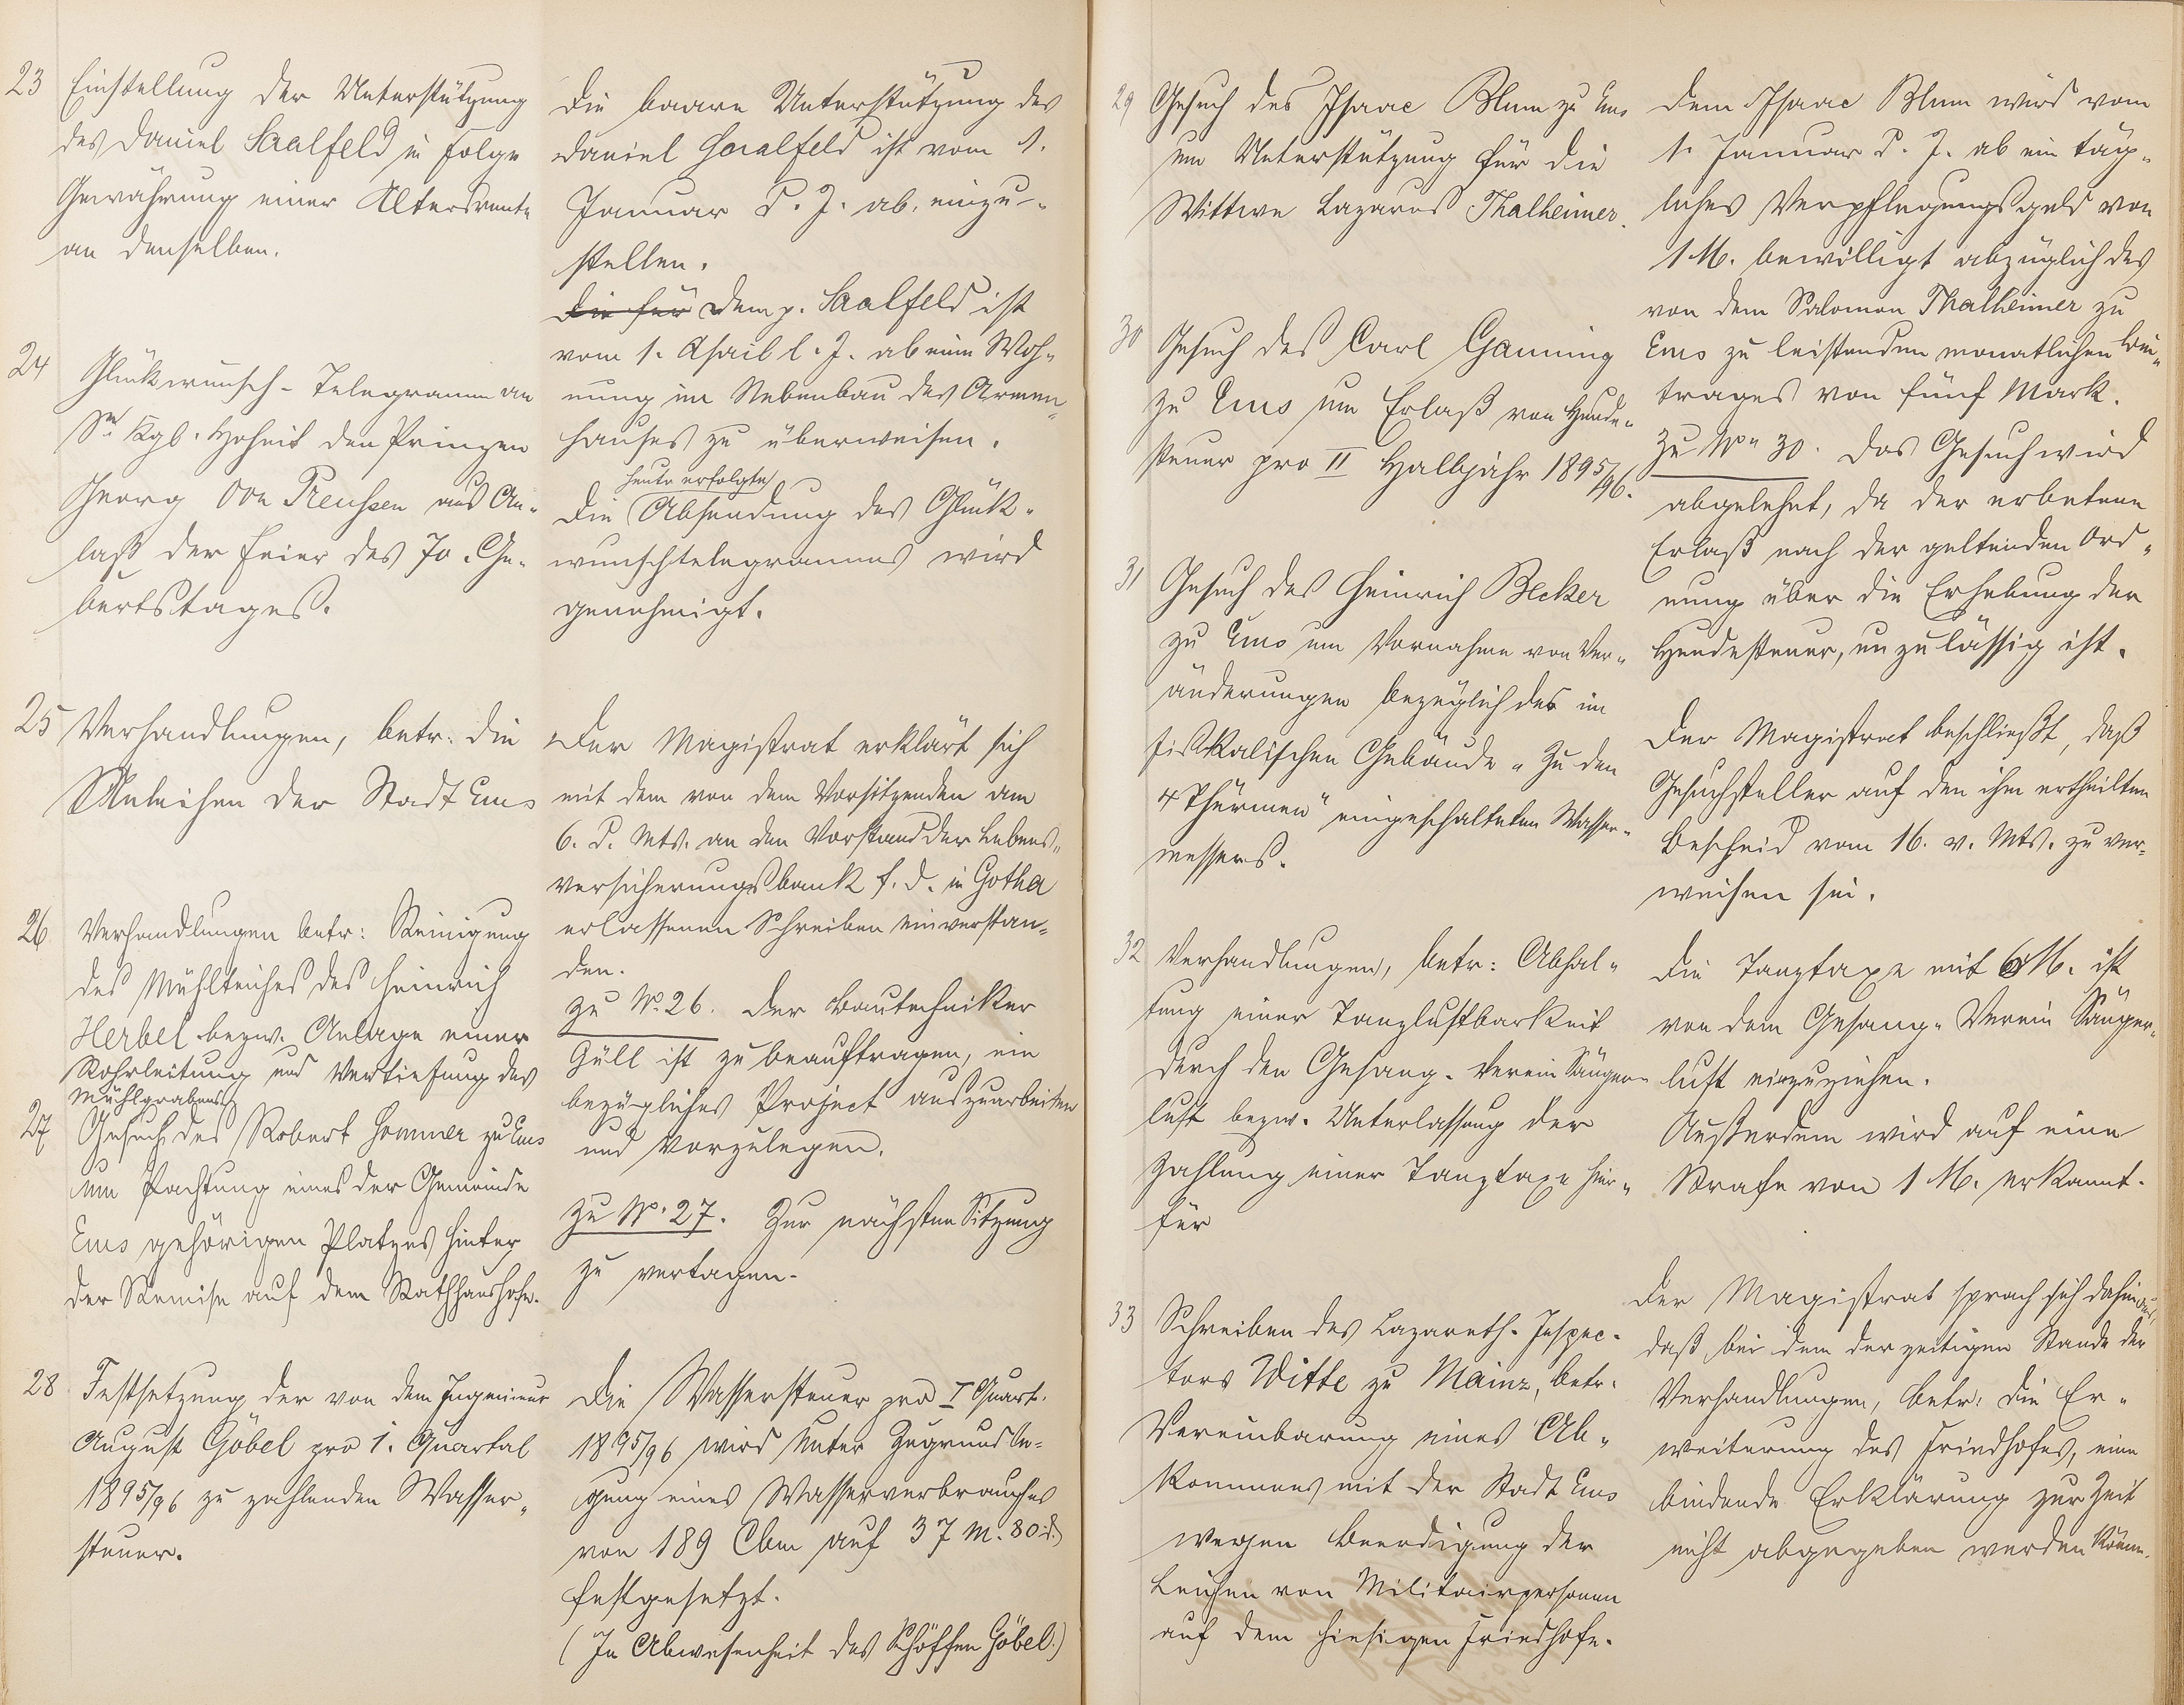 23
Einstellung der Unterstützung
des Daniel Saalfeld in Folge
Gewährung einer Altersrente
an denselben.
Die baare Unterstützung des
Daniel Saalfeld ist vom 1.
Januar d. J. ab, einzu-
stellen.
Die für Dem p. Saalfeld ist
vom 1. April l. J. ab eine Woh-
nung im Nebenbau des Armen-
hauses zu überweisen.
24
Glückwunsch-Telegramm an
Sr. Kgl. Hoheit den Prinzen
Georg von Preußen aus An-
laß der Feier des 70. Ge-
burtstages.
heute erfolgte
Die Absendung des Glück-
wunschtelegramms wird
genehmigt.
25
Verhandlungen, betr. die
Anleihen der Stadt Ems
Der Magistrat erklärt sich
mit dem von dem Vorsitzenden am
6. d. Mts. an den Vorstand der Lebens-
versicherungsbank f. d. in Gotha
erlassenen Schreiben einverstan-
den.
26
Verhandlungen betr: Reinigung
des Mühlteiches des Heinrich
Herbel bezw. Anlage einer
Rohrleitung und Vertiefung des
Mühlgrabens
zu No. 26. Der Bautechniker
Güll ist zu beauftragen, ein
bezügliches Project auszuarbeiten
und vorzulegen.
27
Gesuch des Robert Sommer zu Ems
um Pachtung eines der Gemeinde
Ems gehörigen Platzes hinter
der Remise auf dem Rathhaushofe.
Zu No. 27. Zur nächsten Sitzung
zu vertagen.
28
Festsetzung der von dem Ingenieur
August Göbel pro 1. Quartal
1895/96 zu zahlenden Wasser-
steuer.
Die Wassersteuer pro I Quart.
1895/96 wird unter Zugrundele-
gung eines Wasserverbrauches
von 189 Cbm auf 37 M. 80 d.
festgesetzt.
(In Abwesenheit des Schöffen Göbel.)
29
Gesuch des Isaac Blum zu Ems
um Unterstützung für die
Wittwe Lazarus Thalheimer.
Dem Isaac Blum wird vom
1. Januar d. J. ab ein täg-
liches Verpflegungsgeld von
1 M. bewilligt abzüglich des
von dem Salomon Thalheimer zu
Ems zu leistenden monatlichen Bei-
trages von fünf Mark.
30
Gesuch des Carl Ganning
zu Ems um Erlaß von Hunde-
steuer pro II Halbjahr 1895/96.
Zu No 30. Das Gesuch wird
abgelehnt, da der erbetene
Erlaß nach der geltenden Ord-
nung über die Erhebung der
Hundesteuer, unzulässig ist.
31
Gesuch des Heinrich Becker
zu Ems um Vornahme von Ver-
änderungen bezüglich des im
fiskalischen Gebäude "Zu den
4 Thürmen" eingeschalteten Wasser-
messers.
Der Magistrat beschließt, daß
Gesuchsteller auf den ihm ertheilten
Bescheid vom 16. v. Mts. zu ver-
weisen sei.
32
Verhandlungen, betr: Abhal-
tung einer Tanzlustbarkeit
durch den Gesang-Verein Sänger-
lust bezw. Unterlassung der
Zahlung einer Tanztaxe hier-
für
Die Tanztaxe mit 6 M. ist
von dem Gesang-Verein Sänger-
lust einzuziehen.
Außerdem wird auf eine
Strafe von 1 M. erkannt.
33
Schreiben des Lazareth-Inspec-
tors Witte zu Mainz, betr.
Vereinbarung eines Ab-
kommens mit der Stadt Ems
wegen Beerdigung der
Leichen von Militairpersonen
auf dem hiesigen Friedhofe.
Der Magistrat sprach sich dahin aus,
daß bei dem derzeitigen Stande der
Verhandlungen, betr: die Er-
weiterung des Friedhofes, eine
bindende Erklärung zur Zeit
nicht abgegeben werden könne.